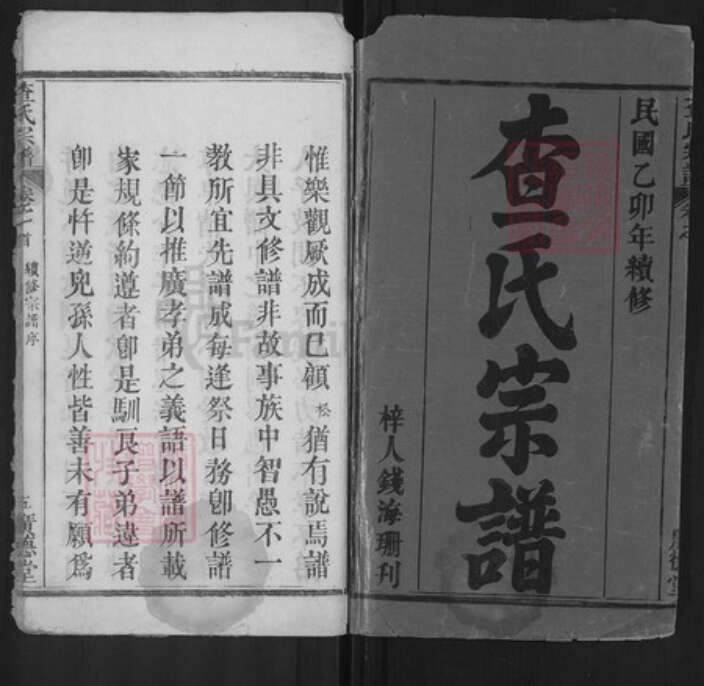 民國乙卯年續修
查氏宗譜
梓人錢海珊刊
惟樂觀厥成而已顧松猶有說焉譜
非具文修譜非故事族中智愚不一
教所宜先譜成每逢祭日務卽修譜
一節以推廣孝弟之義語以譜所載
家規條約遵者卽是馴良子弟違者
卽是忤逆兒孫人性皆善未有願爲
查氏宗譜 卷之首 續修宗譜序 五 廣德堂